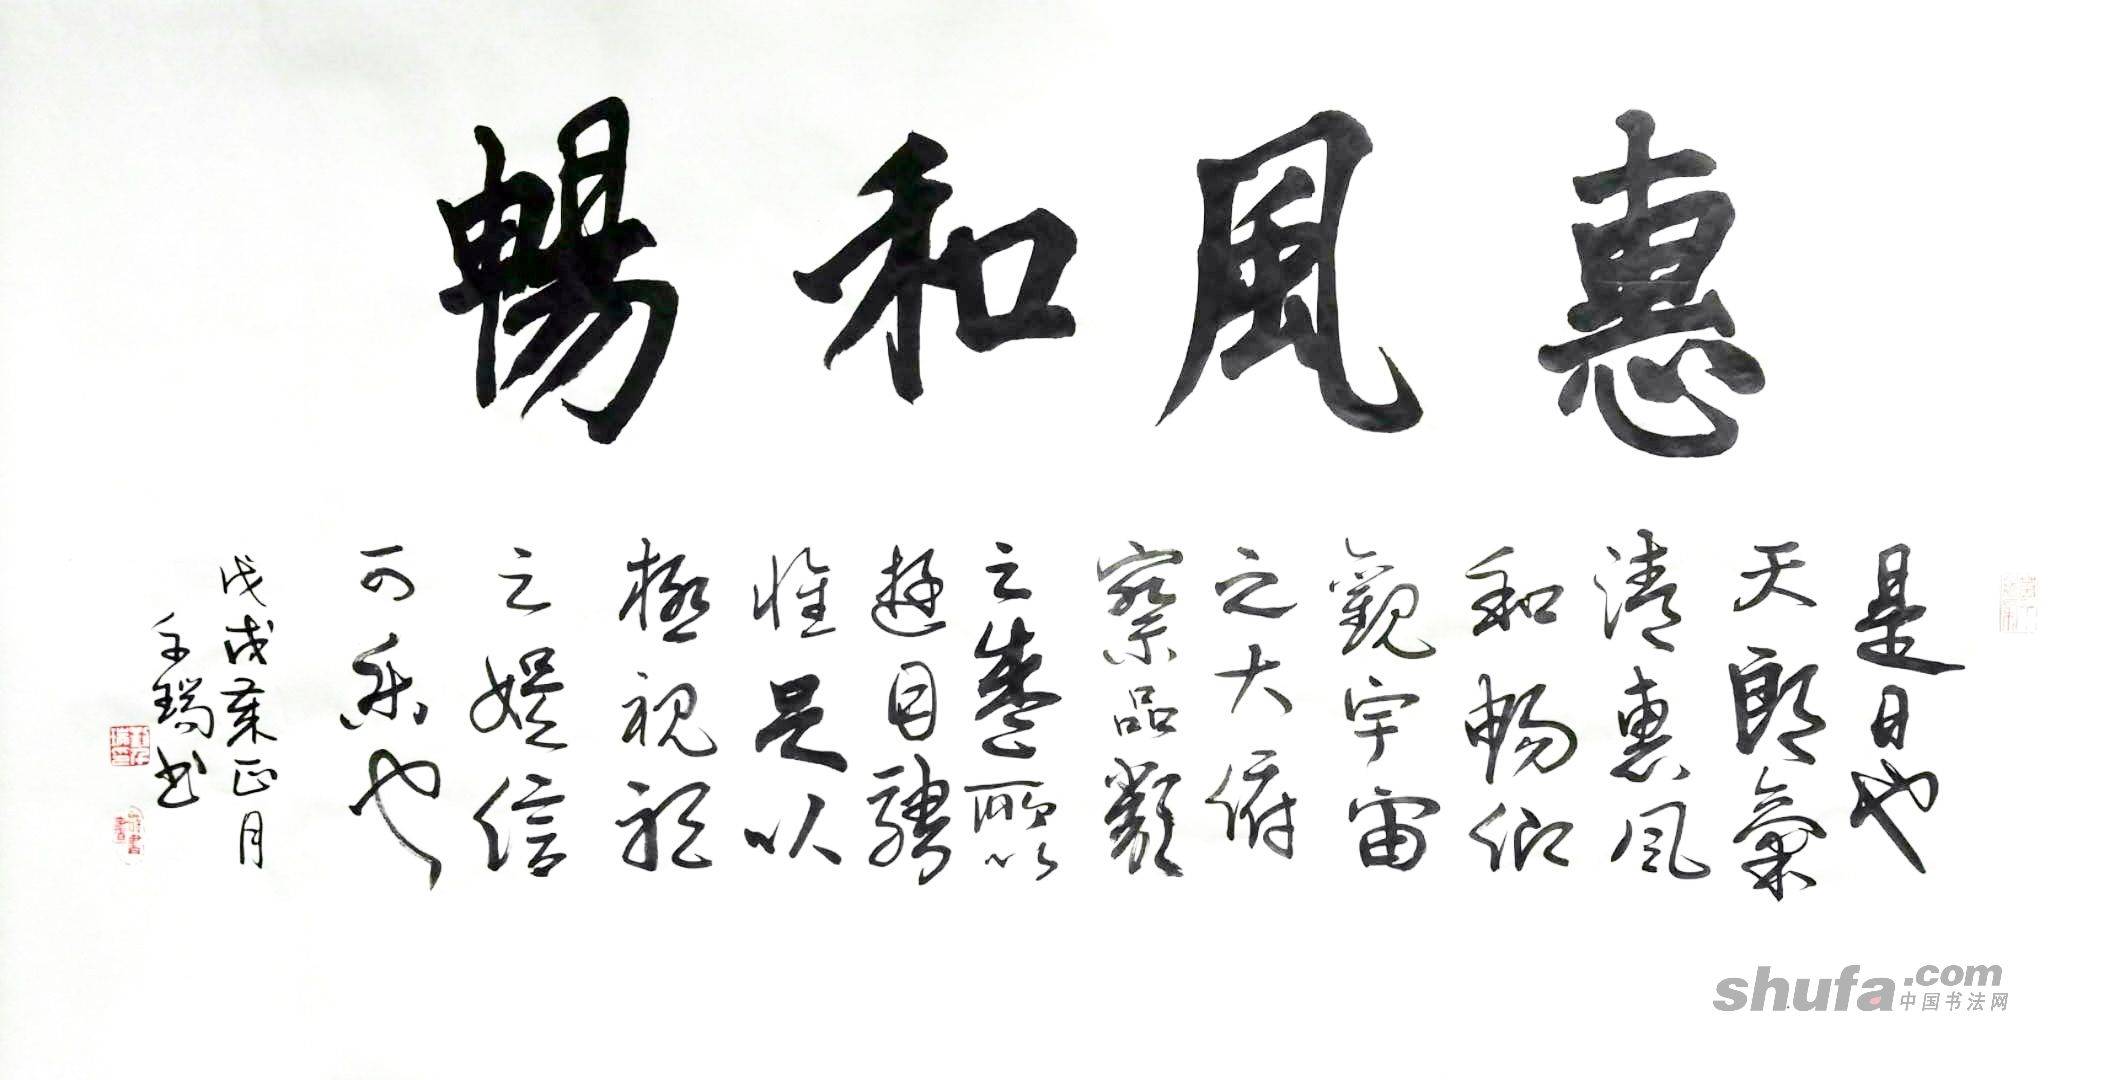 惠風和暢
是日也
天朗氣
清惠風
和暢仰
觀宇宙
之大俯
察品類
之盛所以
遊目騁
懷足以
極視聽
之娛信
可樂也
戊戌年正月
瑞書
shufa.com
中国书法网